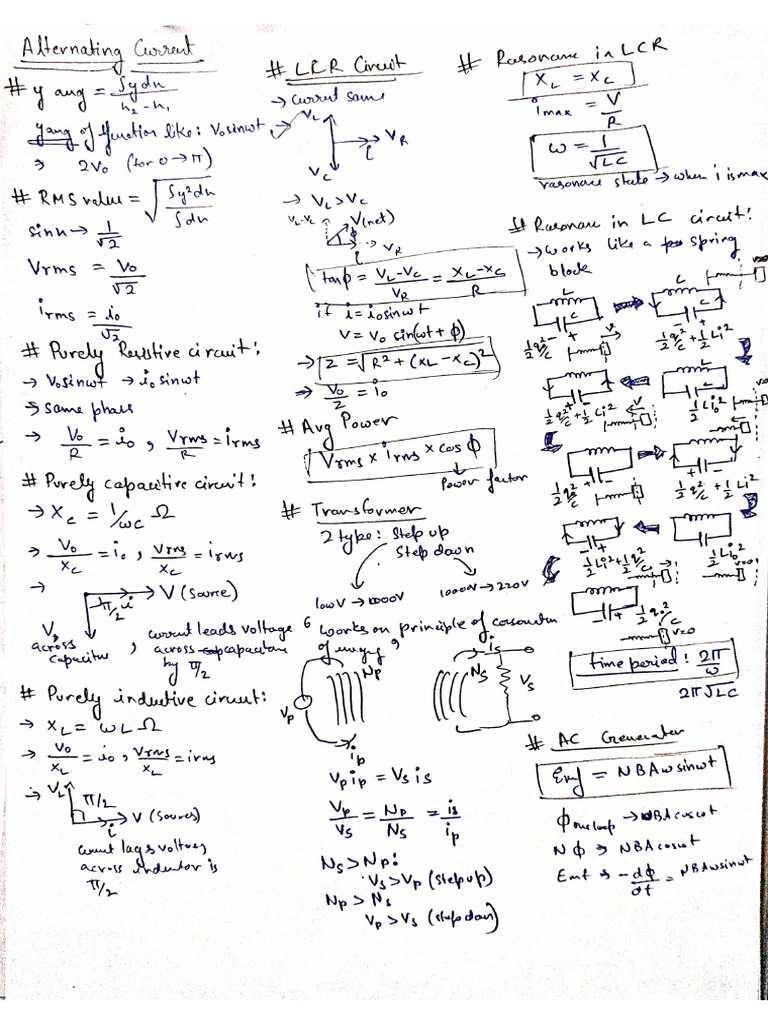 Alternating Current
# y avg = ∫ydx / x₂-x₁
yavg of function like: V₀sinωt
⇒ 2V₀ (for 0→π)
# RMS value = √(∫y²dx / ∫dx)
sinx → 1/√2
Vrms = V₀/√2
irms = i₀/√2
# Purely Resistive circuit:
→ V₀sinωt → i₀sinωt
→ same phase
→ V₀/R = i₀, Vrms/R = irms
# Purely capacitive circuit:
→ Xc = 1/ωc Ω
→ V₀/Xc = i₀, Vrms/Xc = irms
→
π/2 i V (source)
V, across capacitor, current leads voltage across capacitor by π/2
# Purely inductive circuit:
→ XL = ωL Ω
→ V₀/XL = i₀, Vrms/XL = irms
→ VL π/2
i V (source)
current lags voltage
across inductor is
π/2
# LCR Circuit
→ current same
VL
VR
i
Vc
→ VL>Vc
VL-Vc V(net)
φ
VR
i
tanφ = VL-Vc / VR = XL-Xc / R
if i = i₀sinωt
V = V₀ sin(ωt + φ)
→ Z = √R² + (XL-Xc)²
⇒ V₀/Z = i₀
# Avg Power
Vrms × irms × cos φ
Power factor
# Transformer
2 type: Step up
Step down
1000V→220V
works on principle of
of energy
Np Ns is
Vp Vs
ip
Vp ip = Vs is
Vp/Vs = Np/Ns = is/ip
Ns > Np:
Vs>Vp (step up)
Np > Ns
Vp>Vs (step down)
# Rasonane in LCR
XL = Xc
imax = V/R
ω = 1/√LC
rasonane state → when i is max
# Rasonane in LC circuit:
→ works like a spring
block
L L
c c
1/2 q₀²/c 1/2 q²/c + 1/2 Li²
1/2 q²/c + 1/2 Li² 1/2 Li₀²
1/2 q₀²/c 1/2 q²/c + 1/2 Li²
1/2 Li² + 1/2 q²/c 1/2 Li₀²
1/2 q₀²/c
v=0
time period: 2π/ω
2π√LC
# AC Generator
Emf = NBAωsinωt
φ one loop → BAcosωt
Nφ → NBAcosωt
Emf → -dφ/dt = NBAωsinωt